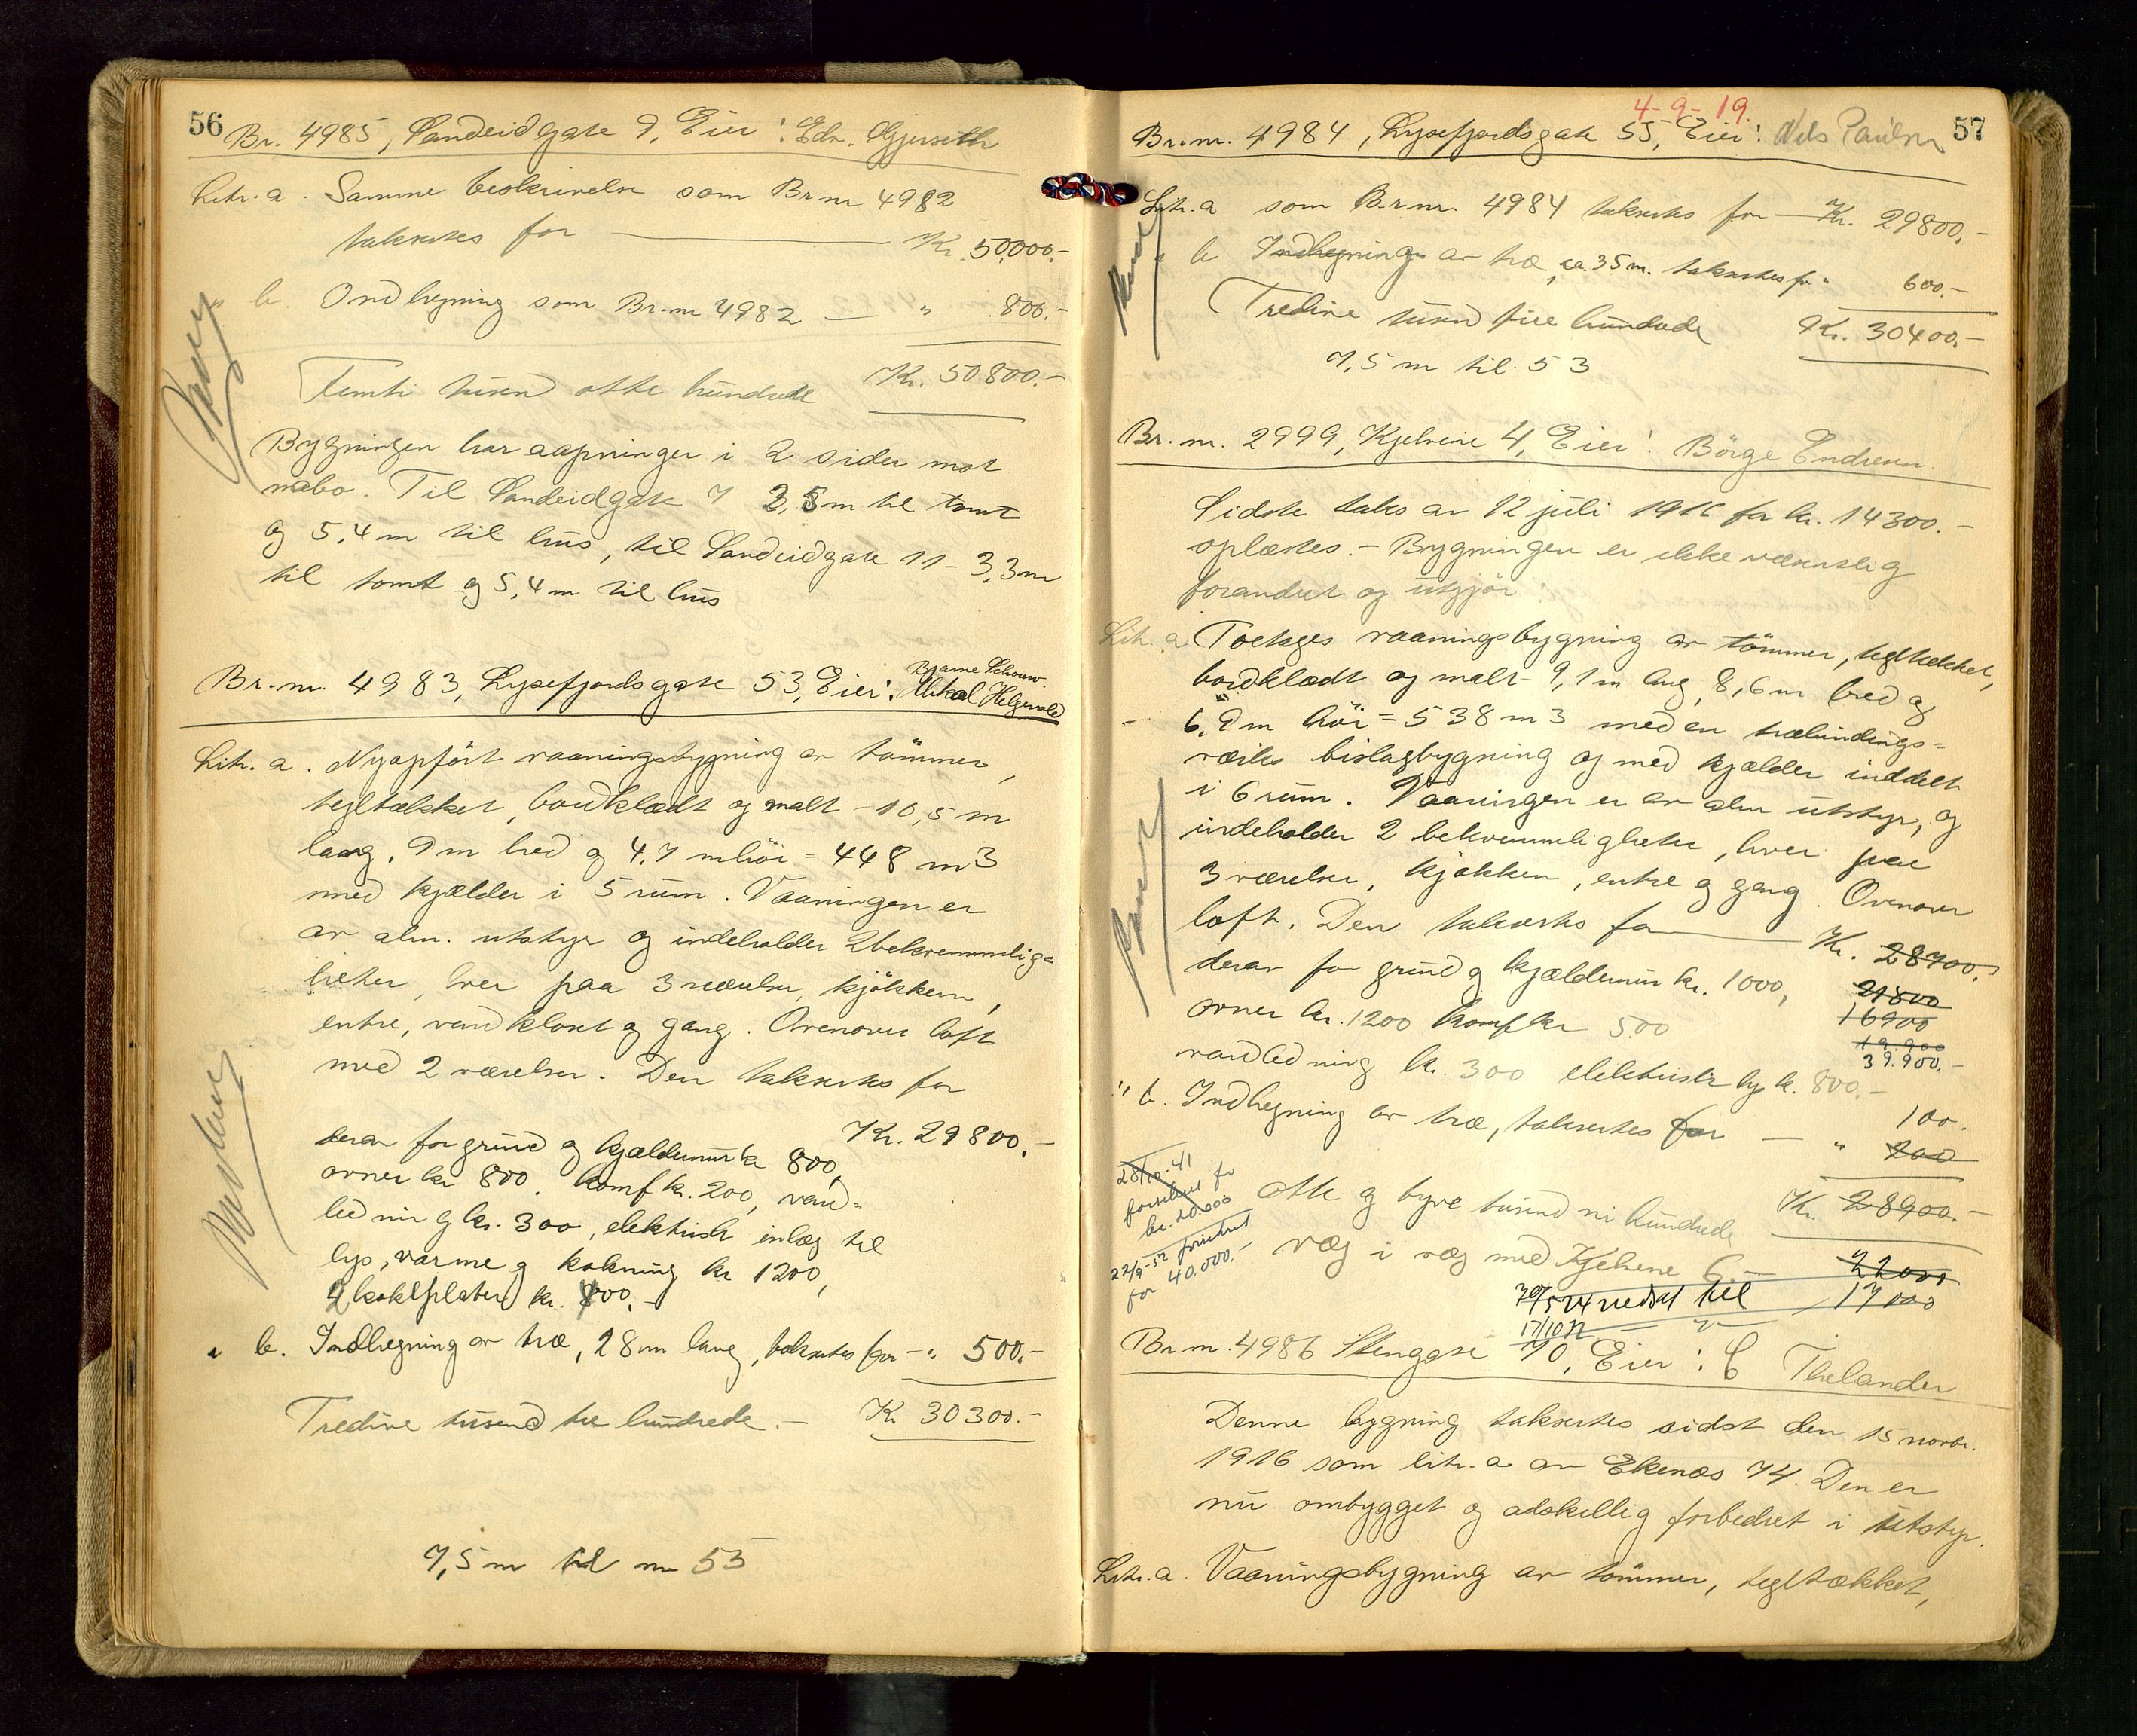 56
Br. 4985, Sandeidgate 9, Eier: Edv. Gjerseth
Litr. a. Samme beskrivelse som Br nr 4982
takseres for — Kr. 50,000.-
" b. Indhegning som Br. nr 4982 — " 800.-
Femti tusen otte hundrede Kr. 50800.-
Bygningen har aapninger i 2 sider mot
nabo. Til Sandeidgate 7 3,3m til tomt
og 5,4 m til hus, til Sandeidgate 11 - 3,3m
til tomt og 5,4 m til hus
Bjarne Schouw.
Br. nr. 4983, Lysefjordsgate 53, Eier: Mikal Helgevold
Litr. a. Nyopført vaaningsbygning av tømmer,
tegltækket, bordklædt og malt - 10,5 m
lang, 9m bred og 4.7 m høi = 448 m3
med kjælder i 5 rum. Vaaningen er
av alm. utstyr og indeholder 2 bekvemmelig=
heter, hver paa 3 værelser, kjøkken,
entre, vandkloset og gang. Ovenover loft
med 2 værelser. Den takseres for
Kr. 29800.-
derav for grund og kjældermur kr 800,
ovner kr 800. komf kr. 200, vand=
ledning kr. 300, elektrisk inlæg til
lys, varme og kokning kr 1200,
2 kokeplater kr. 00.-
" b. Indhegning av træ, 28m lang, takseres for - " 500.-
Tredive tusend tre hundrede. - Kr 30300.-
7,5 m til nr 55
4-9-19.
57
Br. nr. 4984, Lysefjordsgate 55, Eier: Nils Paulsen
Litr. a som Br. nr. 4984 takseres for — Kr. 29800.-
" b Indhegning av træ, ca 35m. takseres for " 600.-
Tredive tusen fire hundrede Kr. 30400.-
7,5 m til 53
Br. nr. 2999, Kjelvene 4, Eier: Børge Endresen
Sidste takst av 12 juli 1916 for kr. 14300.-
oplæstes. - Bygningen er ikke væsentlig
forandret og utgjør:
Litr. a Toetages vaaningsbygning av tømmer, tegltækket,
bordklædt og malt - 9,1m lang, 8,6m bred og
6,9m høi = 538 m3 med en træbindings=
værks bislagbygning og med kjælder inddelt
i 6 rum. Vaaningen er av alm utstyr, og
indeholder 2 bekvemmeligheter, hver paa
3 værelser, kjøkken, entre og gang. Ovenover
loft. Den takseres for — Kr. 28700.-
derav for grund og kjældermur kr. 1000, 21800
ovner kr. 1200 komf kr 500 16900
19.900
39.900.-
vandledning kr. 300 elektrisk lys kr. 800.-
100.
" b. Indhegning av træ, takseres for — " 200
28/10.41
forsikret for
kr. 20.000
22/9-52 forsikret
for 40.000.-
Otte og tyve tusend ni hundrede Kr. 28900.-
væg i væg med Kjelvene 6 — 22000
30/5 24 nedsat til 17000
17/10 32 — " —
Br. nr. 4986 Stenggt 90, Eier: C Thelander
Denne bygning takseres sidst den 15 novbr.
1916 som litr. a av Ekenæs 74. Den er
nu ombygget og adskillig forbedret i utstyr.
Litr. a. Vaaningsbygning av tømmer, tegltækket,